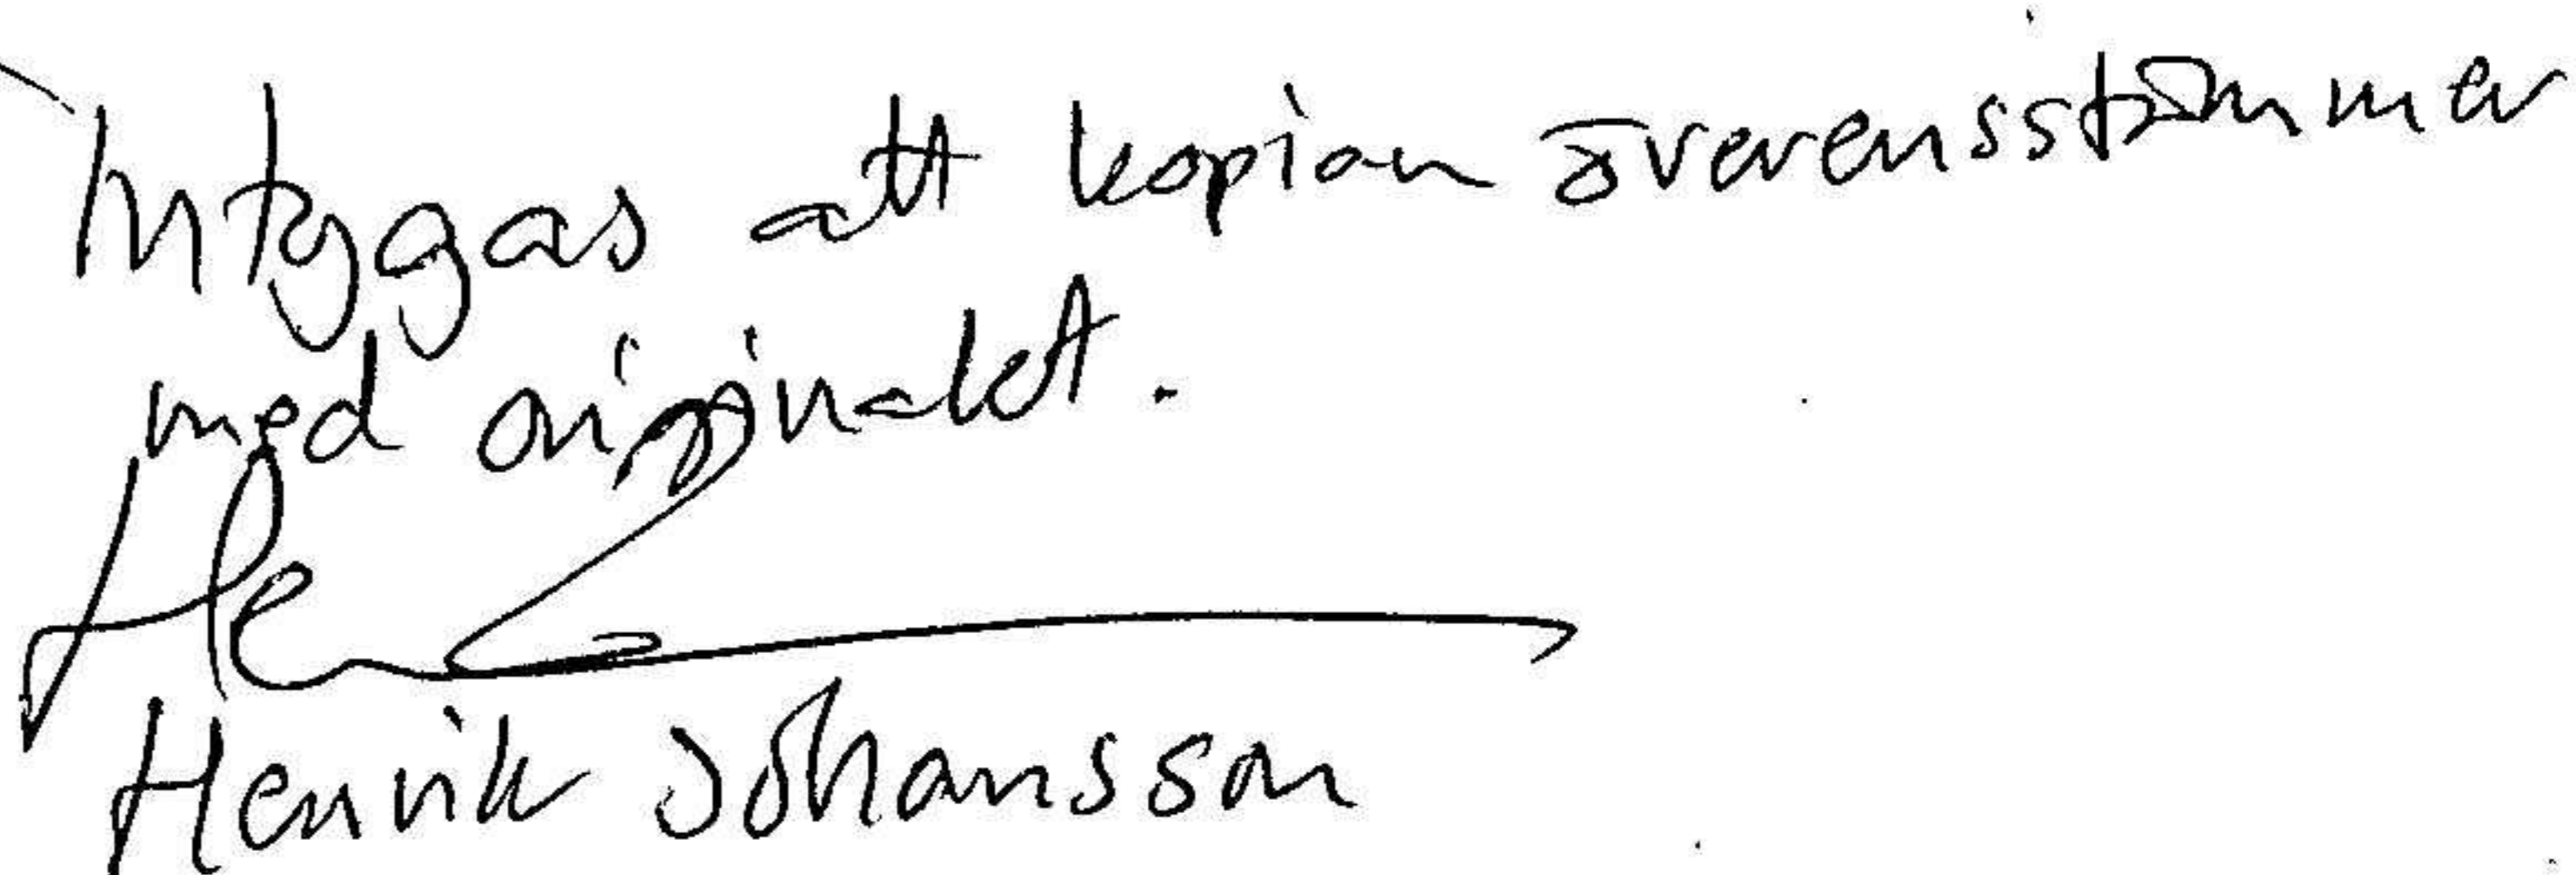 Intygas att kopian överensstämmer
med originalet.
Henrik Johansson